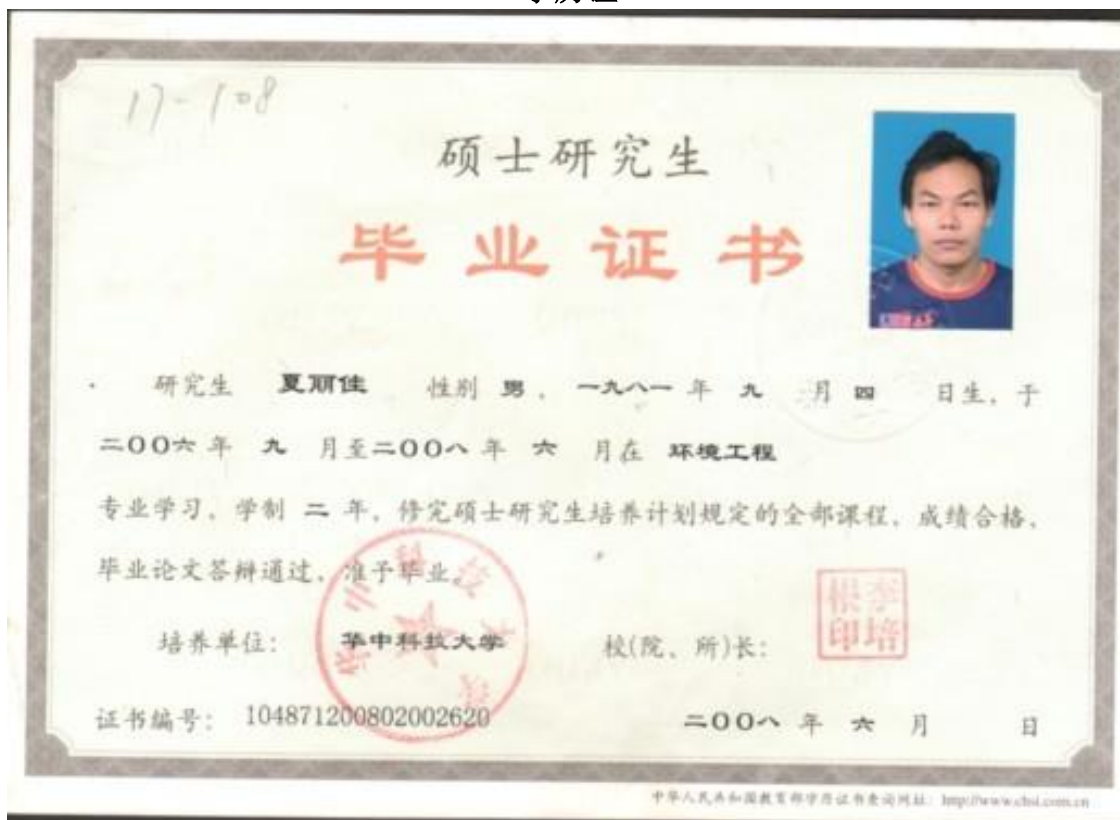 17-108
硕士研究生
毕业证书
研究生 夏丽佳 性别 男，一九八一 年 九 月 四 日生，于
二〇〇六 年 九 月至二〇〇八 年 六 月在 环境工程
专业学习，学制 二 年，修完硕士研究生培养计划规定的全部课程，成绩合格，
毕业论文答辩通过，准予毕业
培养单位： 华中科技大学 校(院、所)长： 李培根印
证书编号： 104871200802002620 二〇〇八 年 六 月 日
中华人民共和国教育部学历证书查询网址：http://www.chsi.com.cn